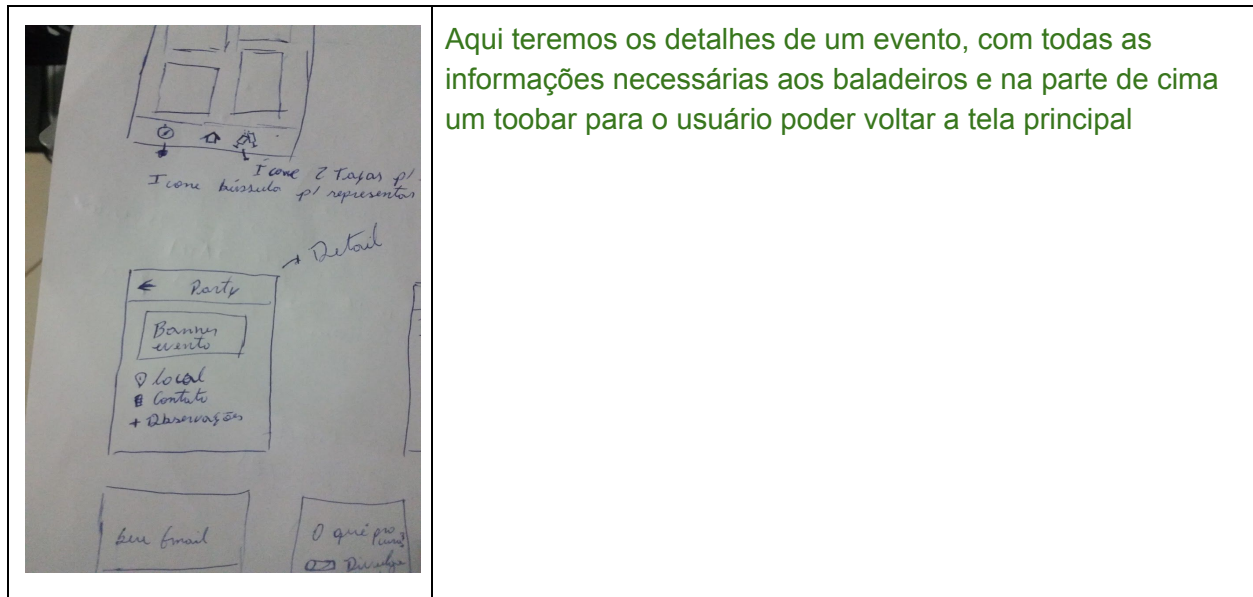 Ícone 2 Taças p/
Icone bússula p/ representar
Detail
Party
Banner
evento
Local
Contato
+ Observações
Seu Email
O que pro
Divulga
Aqui teremos os detalhes de um evento, com todas as
informações necessárias aos baladeiros e na parte de cima
um toobar para o usuário poder voltar a tela principal